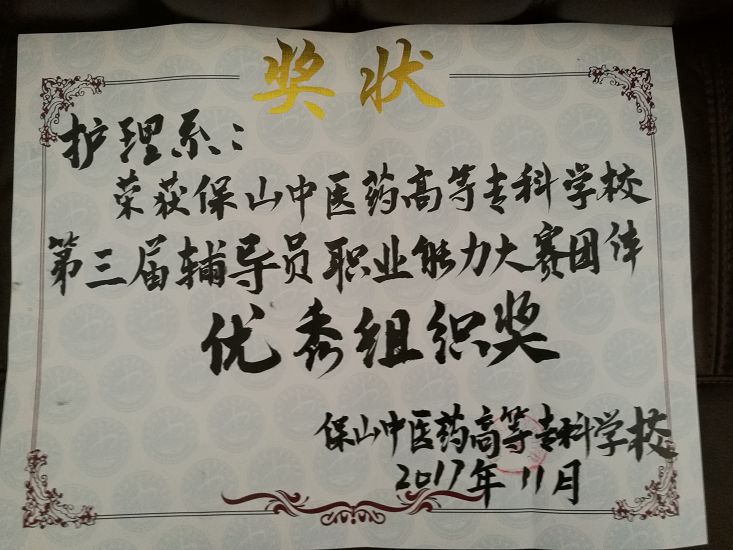 奖状
护理系：
荣获保山中医药高等专科学校
第三届辅导员职业能力大赛团体
优秀组织奖
保山中医药高等专科学校
2017年11月